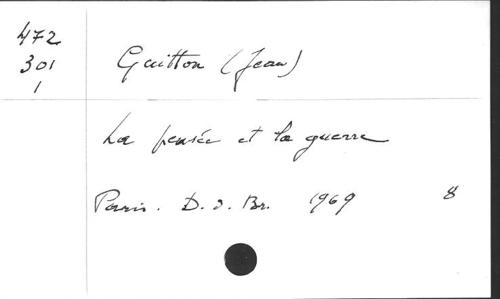 472
301
1
Guitton (Jean)
La pensée et la guerre
Paris. D. d. Br. 1969 8